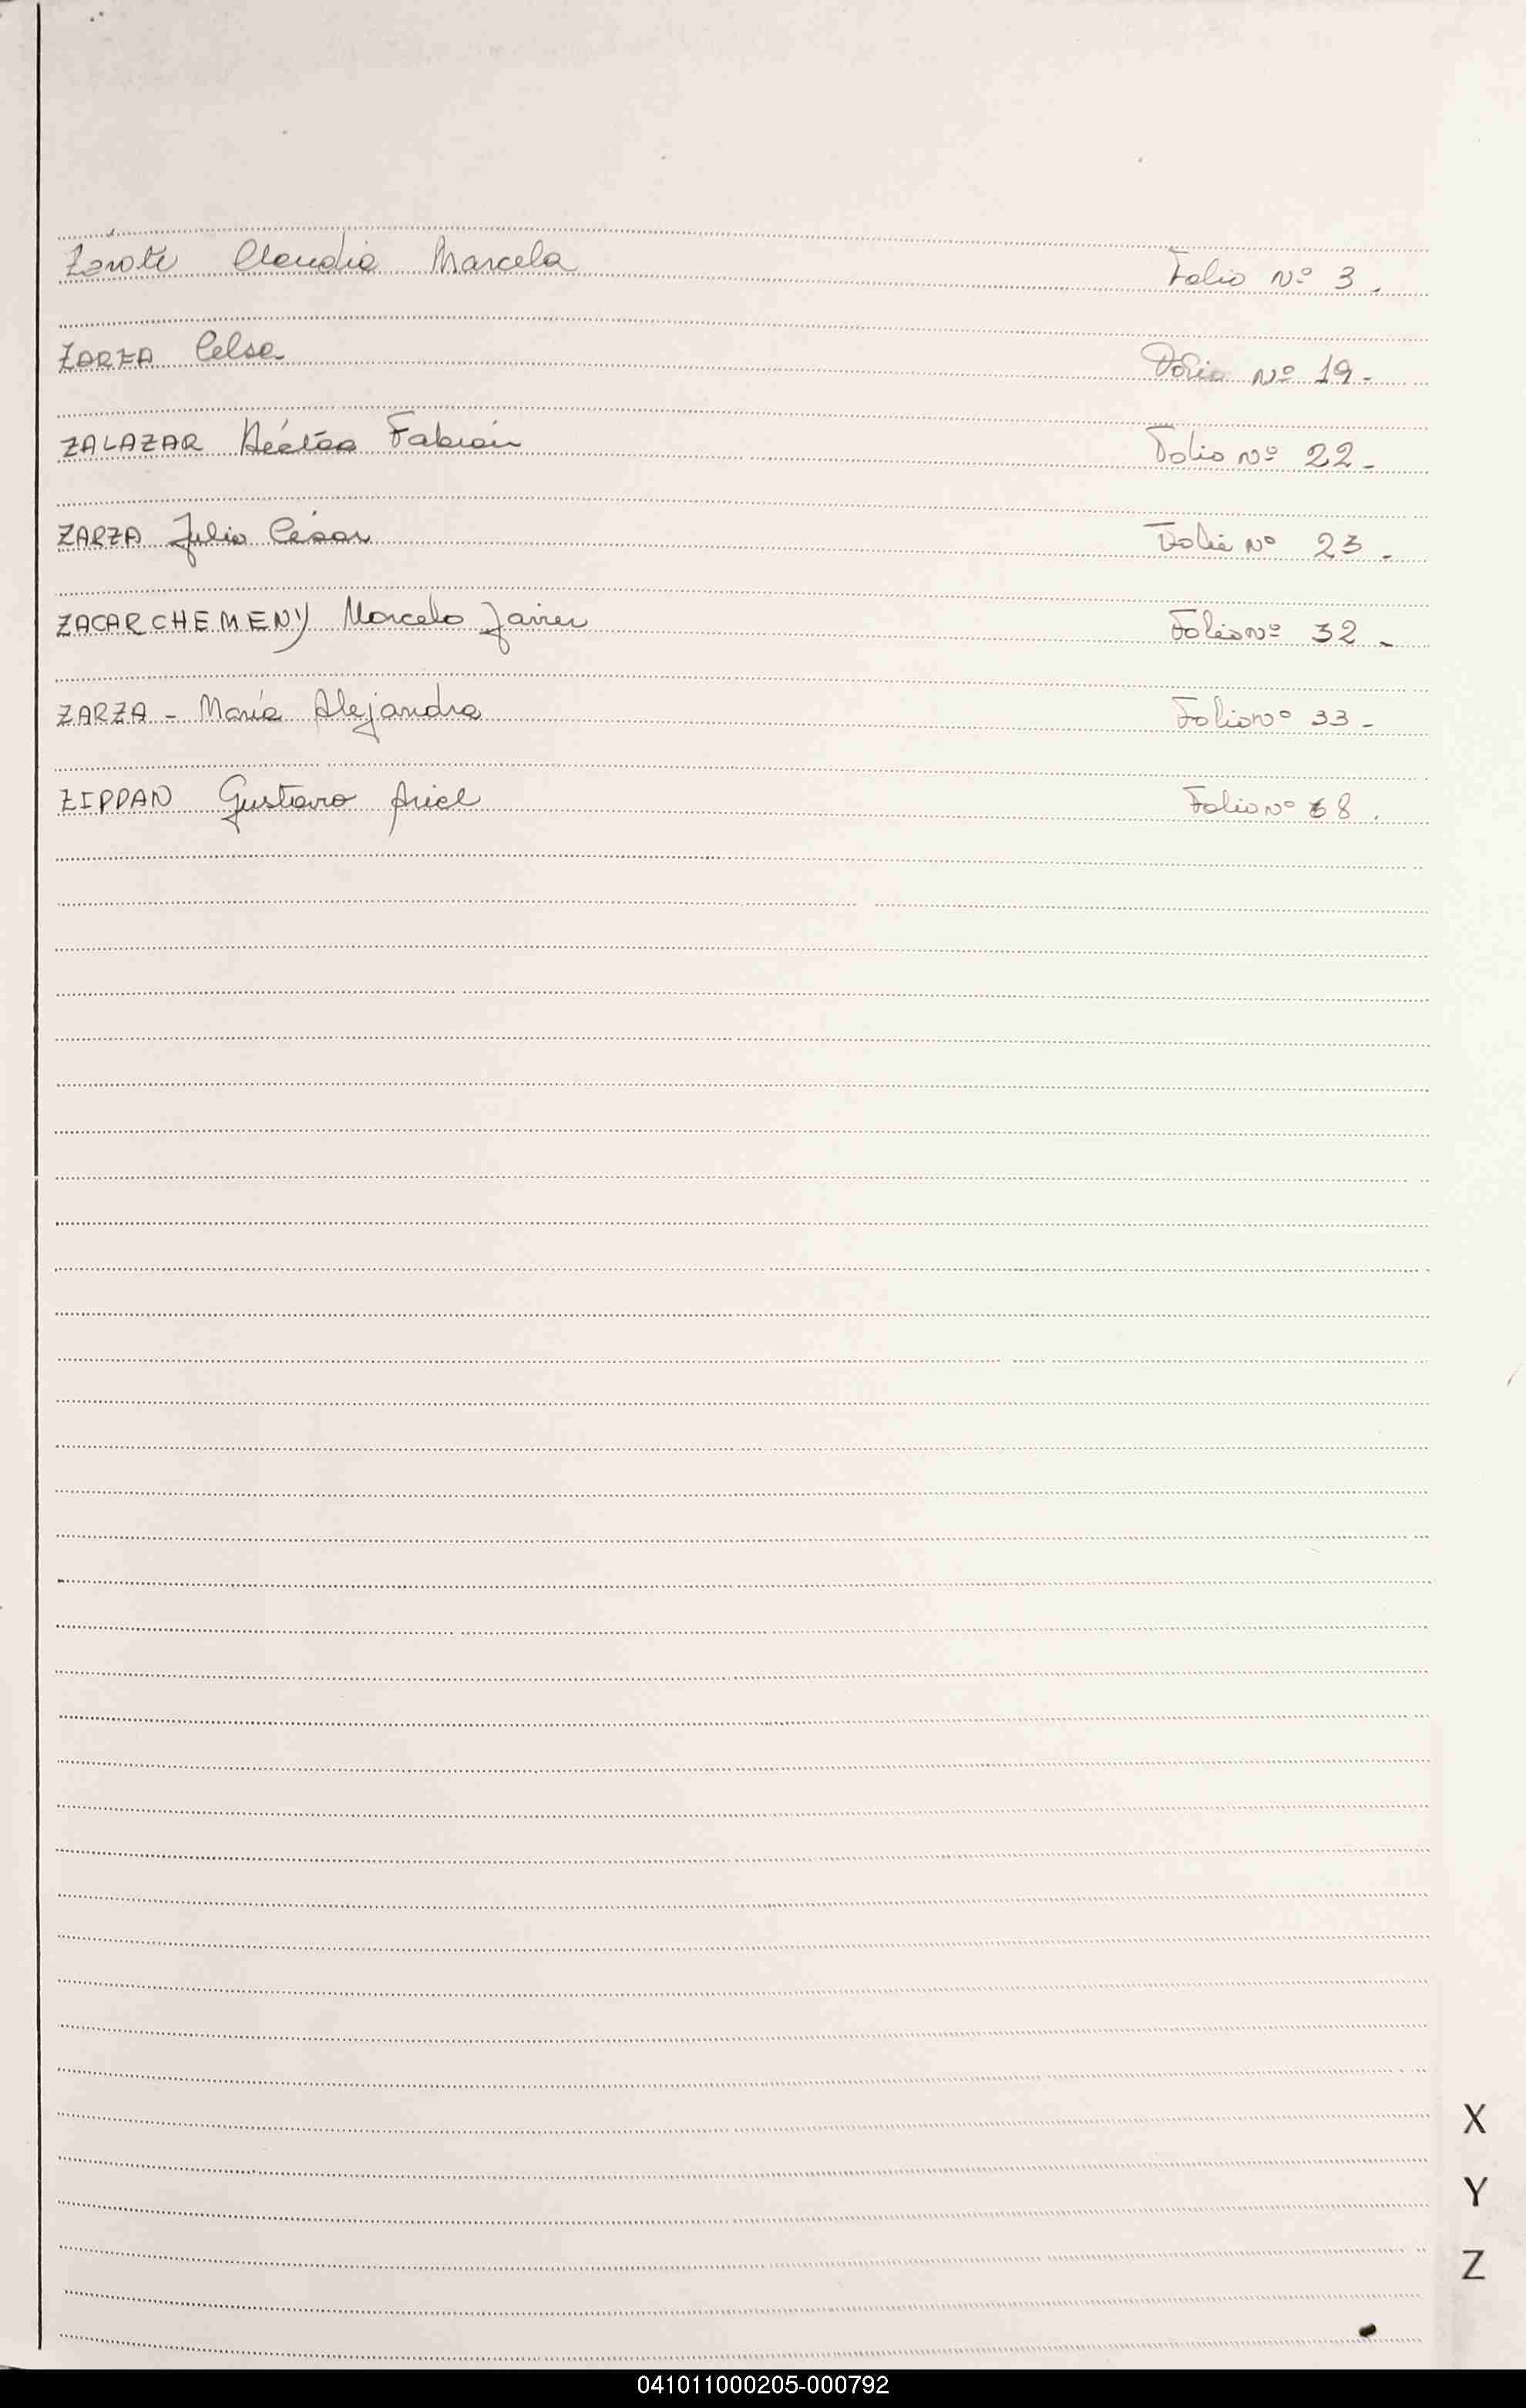 Zárate Claudia Marcela Folio Nº 3.
ZARZA Celsa Folio Nº 19-
ZALAZAR Héctor Fabián Folio Nº 22-
ZARZA Julio César Folio Nº 23-
ZACARCHEMENY Marcelo Javier Folio Nº 32-
ZARZA - María Alejandra Folio Nº 33-
ZIPPAN Gustavo Ariel Folio Nº 68.
X
Y
Z
041011000205-000792